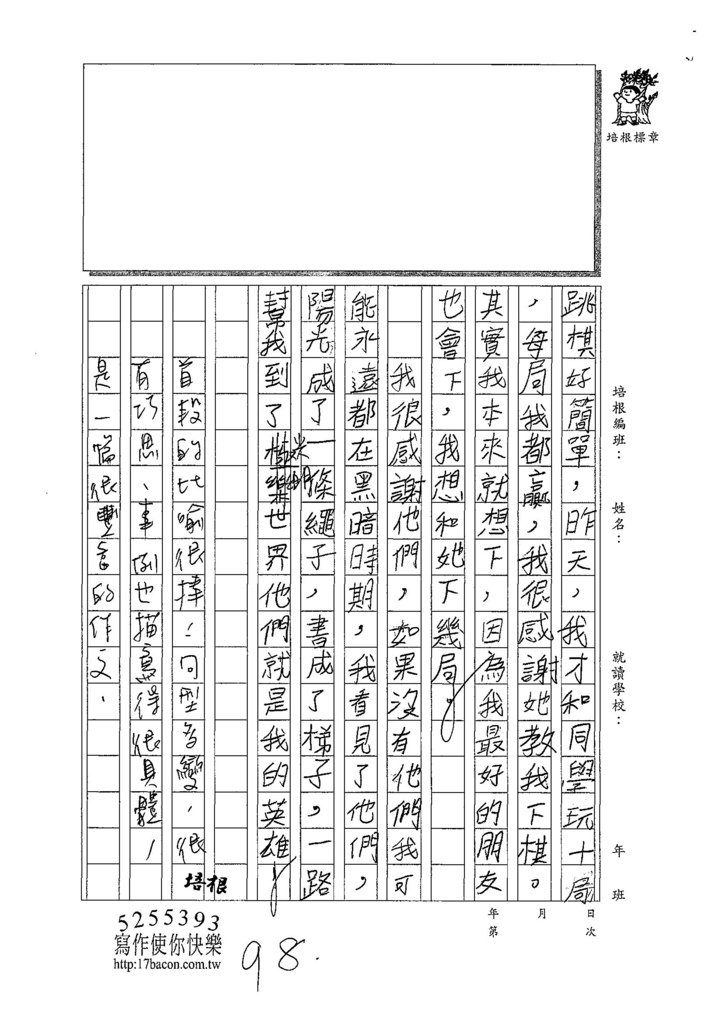 培根標章
培根編班：
姓名：
就讀學校：
年
班
跳棋好簡單，昨天，我才和同學玩十局
，每局我都贏，我很感謝她教我下棋。
其實我本來就想下，因為我最好的朋友
也會下，我想和她下幾局。
我很感謝他們，如果沒有他們我可
能永遠都在黑暗時期，我看見了他們，
陽光成了一條繩子，書成了梯子，一路
幫我到了世界他們就是我的英雄
首段的比喻很棒！句型多變，很
有巧思、事例也描寫得很具體，
是一篇很豐富的作文。
培根
年 月 日
第 次
5255393
寫作使你快樂
http:17bacon.com.tw
98.